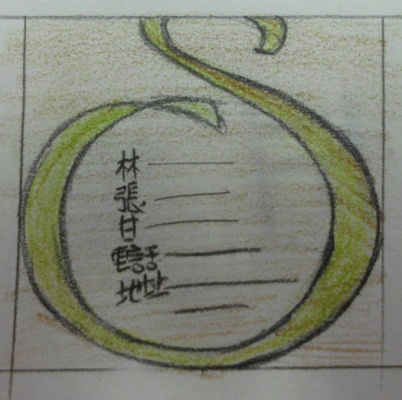 林
張
甘
電話
地址